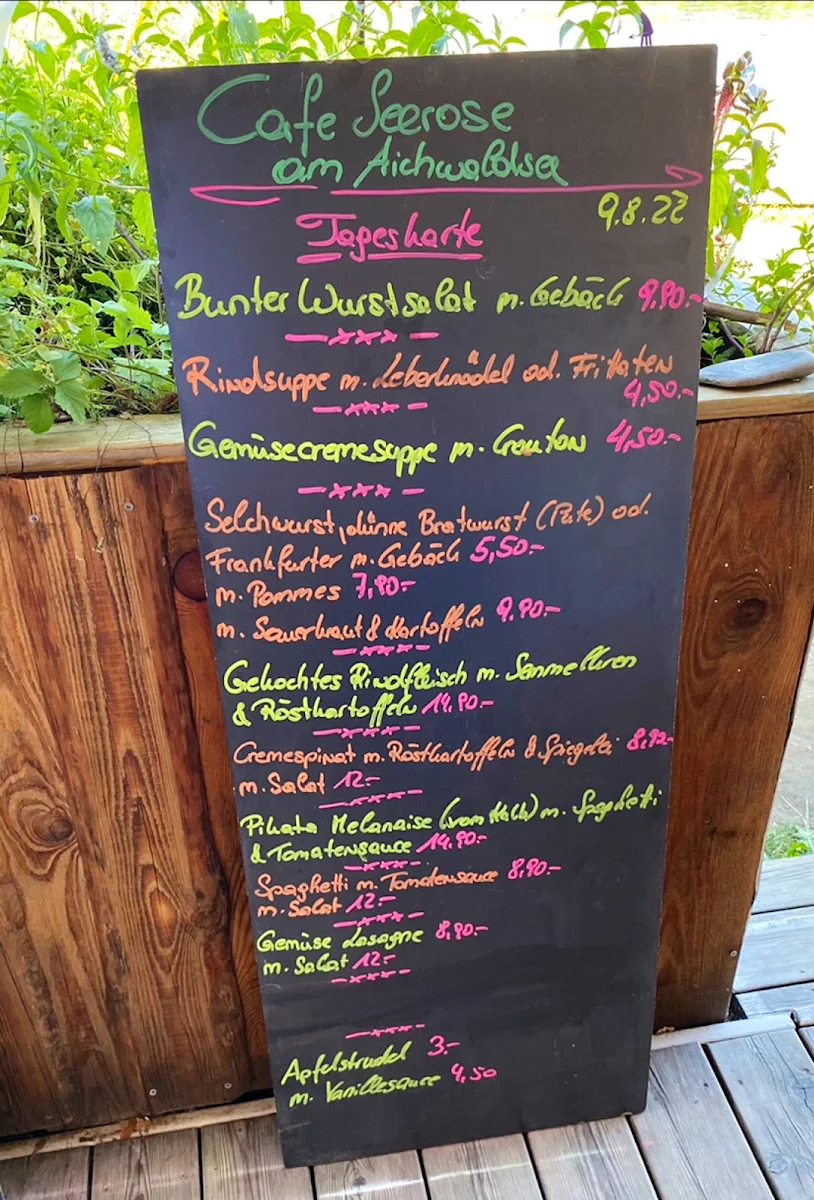 Cafe Seerose
am Aichwaldsee
9.8.22
Tageskarte
Bunter Wurstsalat m. Gebäck 9,90.-
Rindsuppe m. Leberknödel od. Frittaten
4,50.-
Gemüsecremesuppe m. Crouton 4,50.-
Selchwurst, dünne Bratwurst (Pute) od.
Frankfurter m. Gebäck 5,50.-
m. Pommes 7,90.-
m. Sauerkraut & Kartoffeln 9.90.-
Gekochtes Rindfleisch m. Semmelkren
& Röstkartoffeln 14.90.-
Cremespinat m. Röstkartoffeln & Spiegelei 8,90.-
m. Salat 12.-
Pikata Melanaise (vom Kalb) m. Spaghetti
& Tomatensauce 14.90.-
Spaghetti m. Tomatensauce 8,90.-
m. Salat 12.-
Gemüse Lasagne 8,90.-
m. Salat 12.-
Apfelstrudel 3.-
m. Vanillesauce 4,50